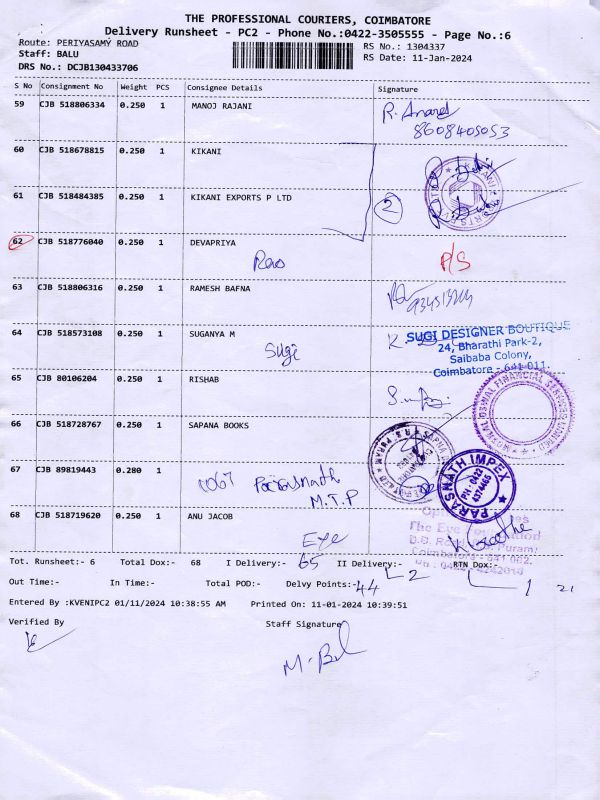 THE PROFESSIONAL COURIERS, COIMBATORE
Delivery Runsheet - PC2 - Phone No.:0422-3505555 - Page No.:6
Route: PERIYASAMY ROAD
RS No.: 1304337
Staff: BALU
RS Date: 11-Jan-2024
DRS No.: DCJB130433706
S No Consignment No Weight PCS Consignee Details Signature
59 CJB 518806334 0.250 1 MANOJ RAJANI R. Anand
8608405053
60 CJB 518678815 0.250 1 KIKANI
61 CJB 518484385 0.250 1 KIKANI EXPORTS P LTD 2
62 CJB 518776040 0.250 1 DEVAPRIYA
Rao P/S
63 CJB 518806316 0.250 1 RAMESH BAFNA
64 CJB 518573108 0.250 1 SUGANYA M K.
Sugi
SUGI DESIGNER BOUTIQUE
24, Bharathi Park-2,
Saibaba Colony,
Coimbatore - 641 011.
65 CJB 80106204 0.250 1 RISHAB
MOTILAL OSWAL FINANCIAL SERVICES LIMITED
66 CJB 518728767 0.250 1 SAPANA BOOKS
67 CJB 89819443 0.280 1
Parasnath
M.T.P
PARASNATH IMPEX
PH: 0422
4374665
68 CJB 518719620 0.250 1 ANU JACOB
Eye
The Eye Foundation
Tot. Runsheet:- 6 Total Dox:- 68 I Delivery:- 65 II Delivery:- 2 RTN Dox:- 1 21
Out Time:- In Time:- Total POD:- Delvy Points:- 44
Entered By :KVENIPC2 01/11/2024 10:38:55 AM Printed On: 11-01-2024 10:39:51
Verified By Staff Signature